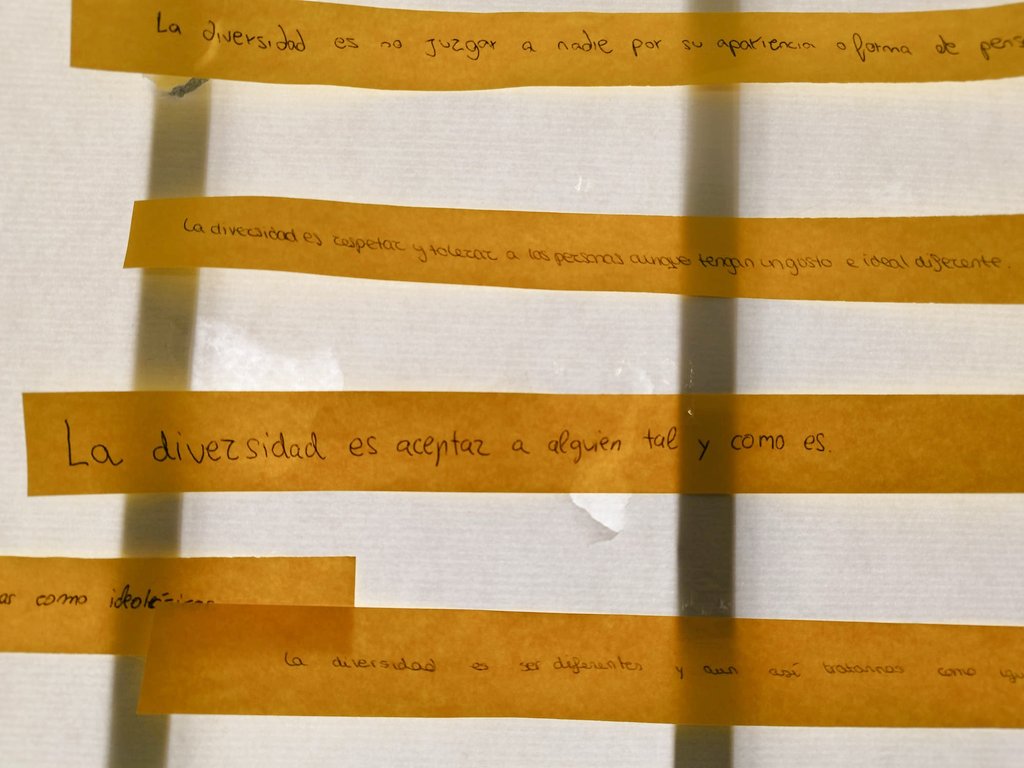 La diversidad es no juzgar a nadie por su apariencia o forma de pens
La diversidad es respetar y tolerar a las personas aunque tengan un gusto e ideal diferente.
La diversidad es aceptar a alguien tal y como es.
as como ideoló
La diversidad es ser diferentes y aun así tratarnos como igu